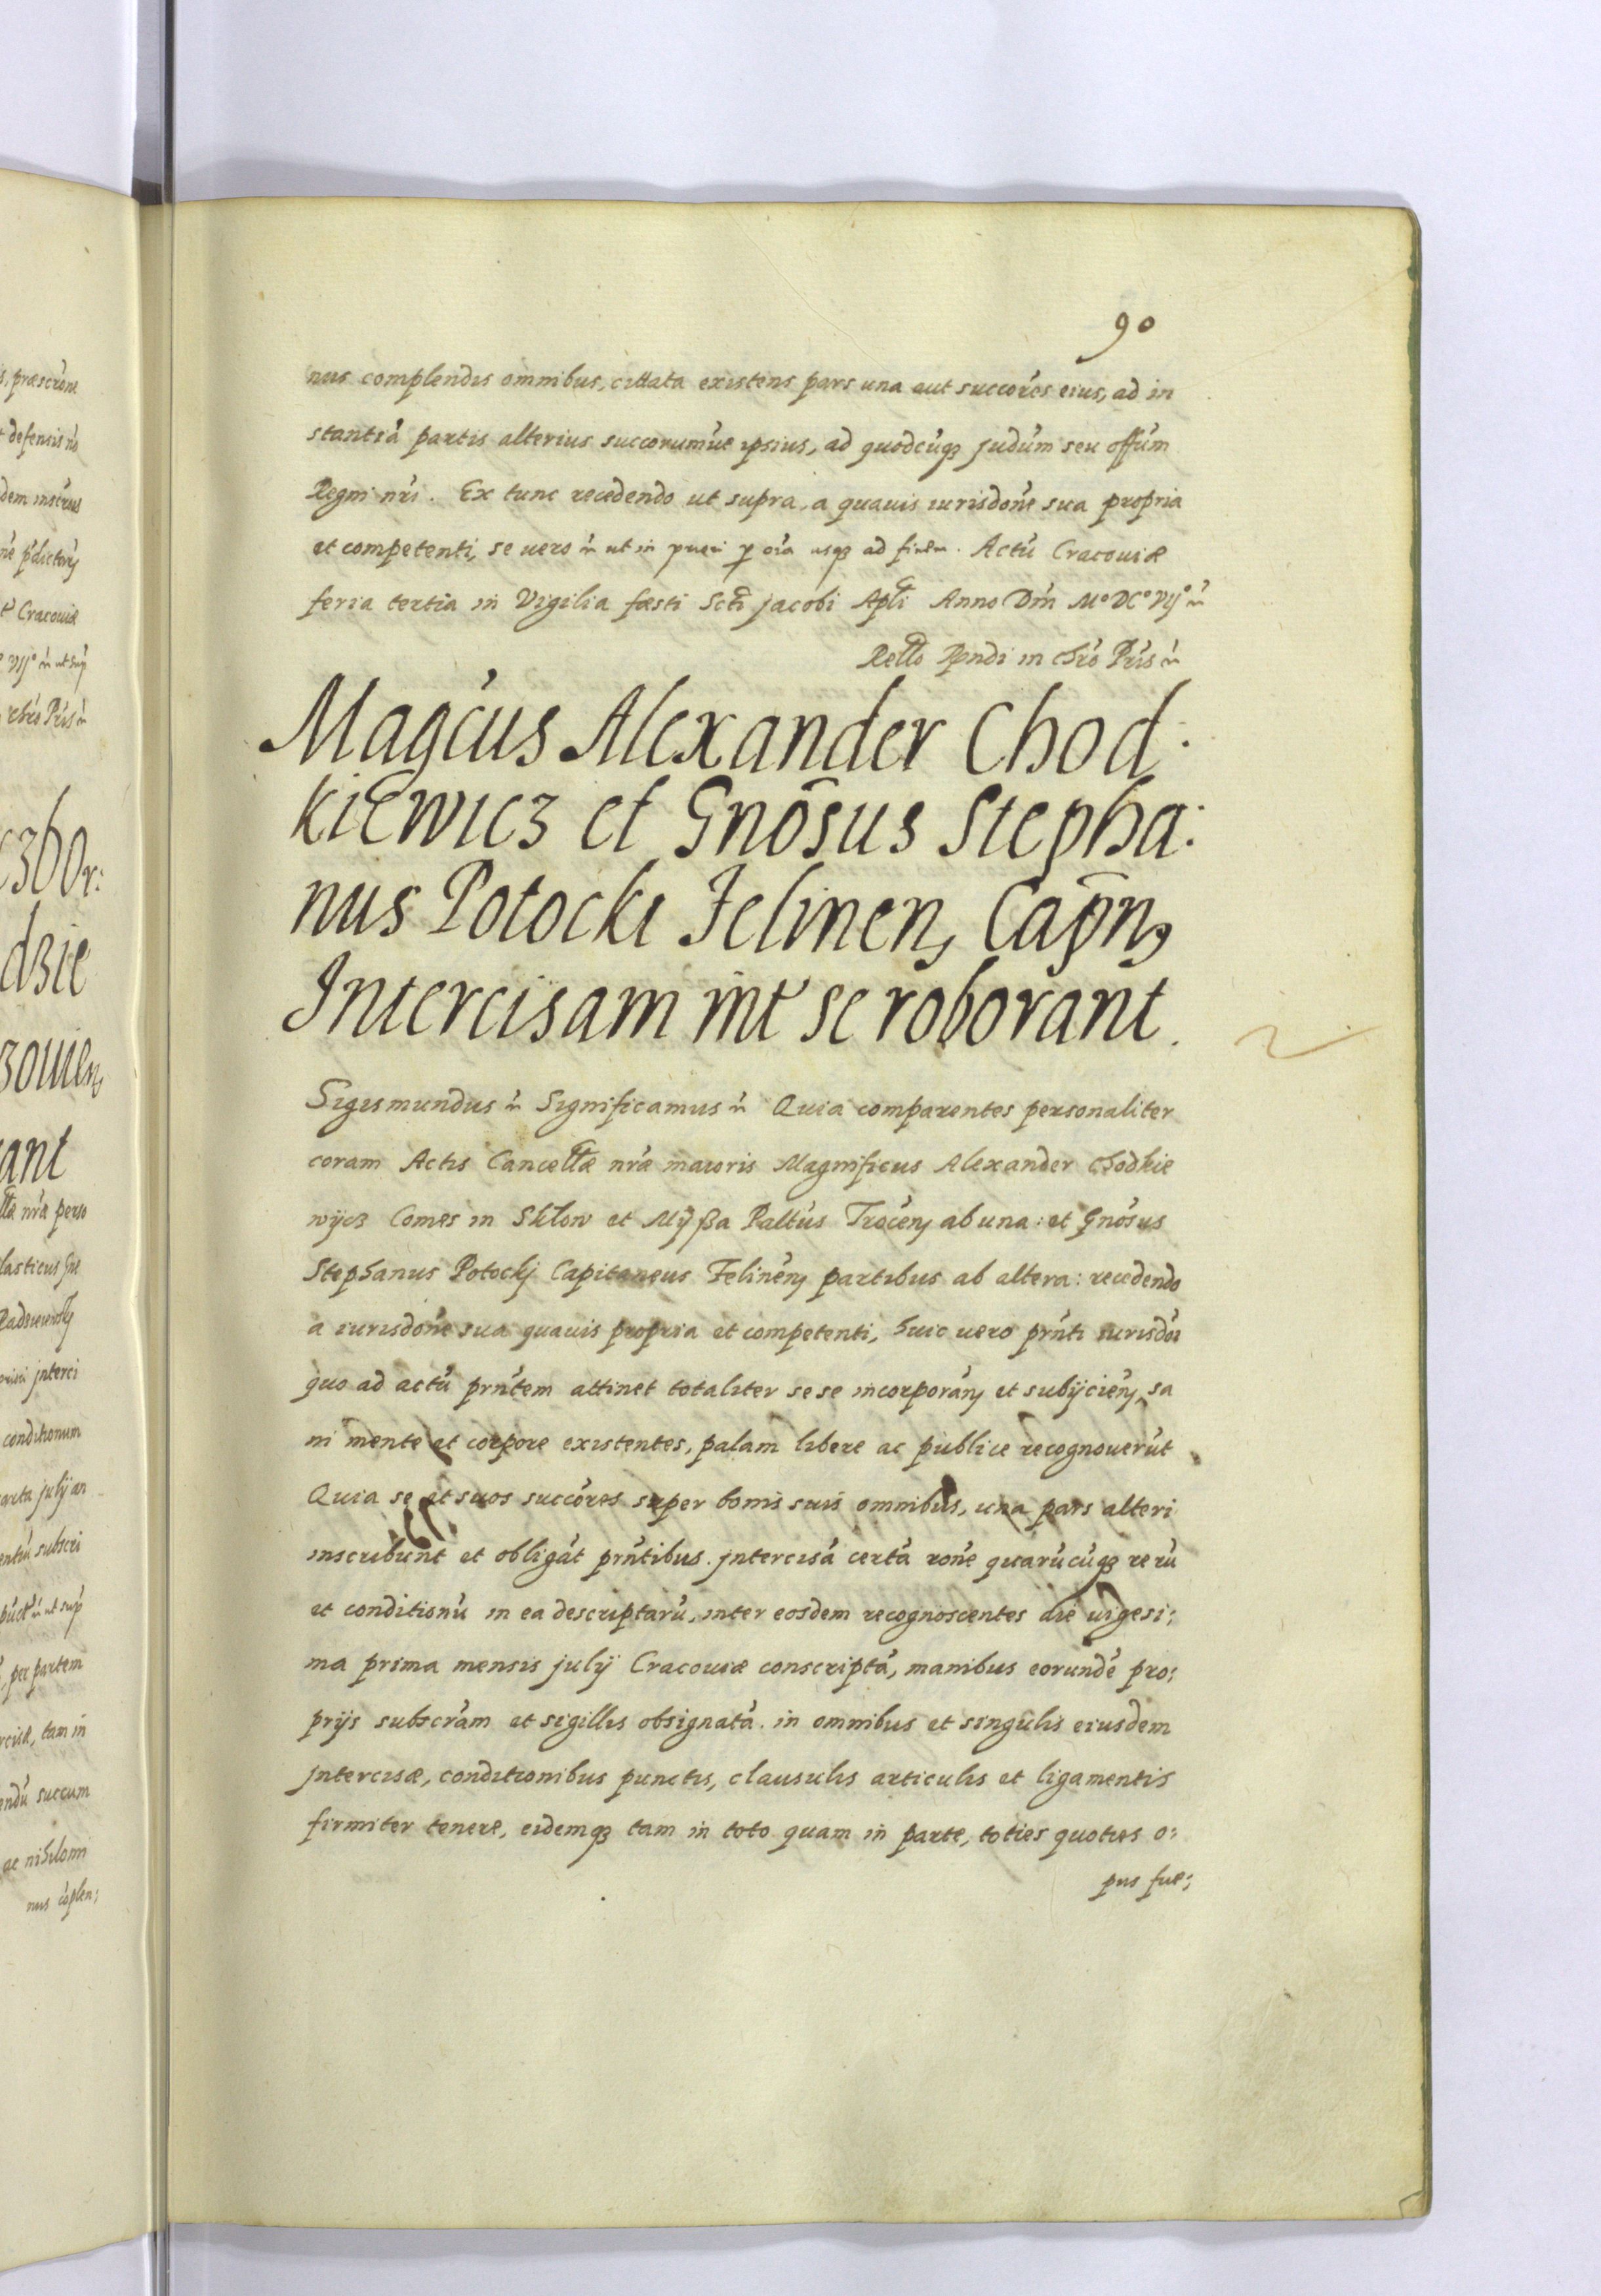 90
nus complendis omnibus, cittata existens pars una aut succo͠res eius, ad in
stantiā partis alterius succorumue ipsius, ad quodcūqȝ judūm seu offūm
Regni nrī. Ex tunc recedendo ut supra, a quauis iurisdone sua propria
et competenti, se uero ut in oīa usqȝ ad finem. Actū Cracouiæ
feria tertia in Vigilia fæsti Sctī Jacobi Aplī Anno Dm̄ M° DC° VIJ°
Rello Rpndi in chrō Prīs
Magcūs Alexander Chod:
kiewicz et Gnōsus Stepha:
nus Potocki Felinen, Capn,
Intercisam int se roborant.
Sigismundus Significamus Quia comparentes personaliter
coram Actis Cancellæ nrǣ maioris Magnificus Alexander Chodkie
wijcz Comes in Sklow et Mÿßa Paltūs Trocēn, ab una: et Gnōsus
Stephanus Potockj Capitaneus Felinēn, partibus ab altera: recedendo
a iurisdonē sua quauis propria et competenti, huic uero prn̄ti iurisdōi
quo ad actū prn̄tem attinet totaliter sese incorporān, et subijciēn, sa
ni mente et corpore existentes, palam libere ac publice recognouerūt
Quia se et suos succōres super bonis suis omnibus, una pars alteri
inscribunt et obligāt prn̄tibus. jntercisā certā ronē quarūcūqȝ rerū
et conditionū in ea descriptarū, inter eosdem recognoscentes die uigesi:
ma prima mensis julÿ Cracouiæ conscriptā, manibus eorundē pro:
prijs subscrām et sigillis obsignatā. in omnibus et singulis eiusdem
jntercisæ, conditionibus punctis, clausulis articulis et ligamentis
firmiter tenere, eidemqȝ tam in toto quam in parte, toties quoties o:
pus fue: